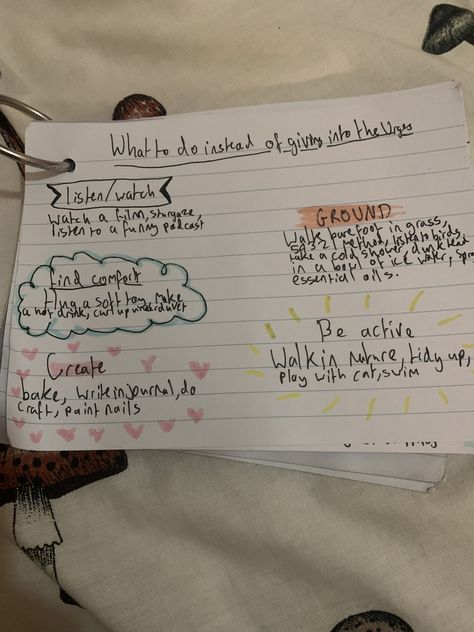 What to do instead of giving into the Urges
listen/watch
Watch a film, stargaze,
listen to a funny podcast
GROUND
Walk barefoot in grass,
54321 method, listen to birds,
take a cold shower, dunk head
in a bowl of ice water,
essential oils.
find comfort
Hug a soft toy, make
a hot drink, curl up under duvet
Be active
Walk in nature, tidy up,
play with cat, swim
Create
bake, write in journal, do
craft, paint nails